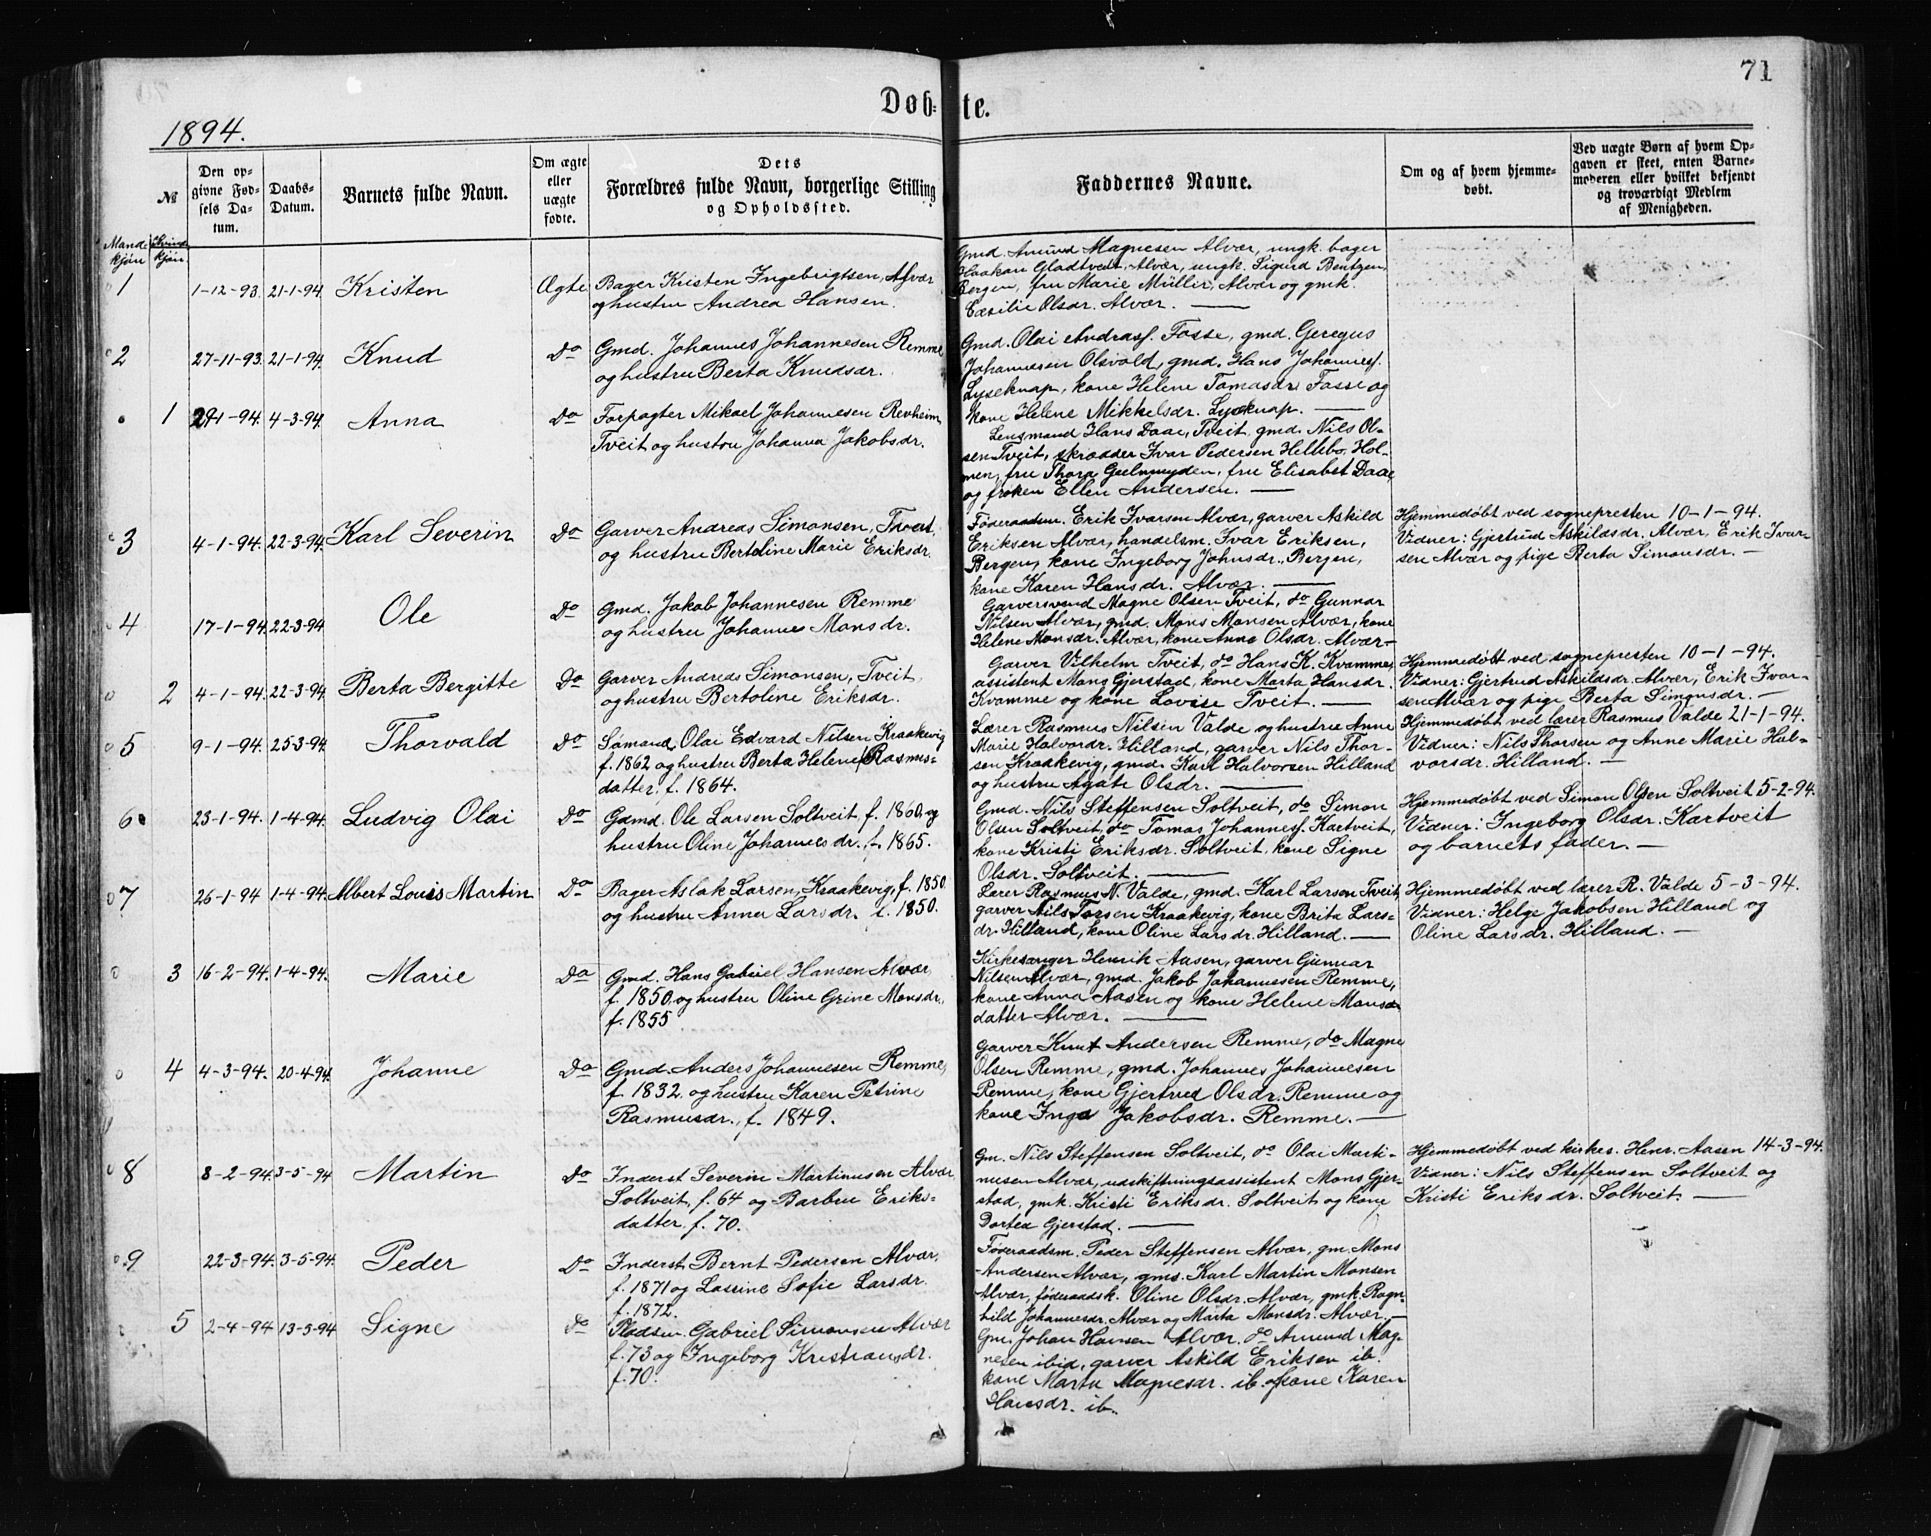 71
Døb-te.
1894.
№
Den op-
givne Fød-
sels Da-
tum.
Daabs-
Datum.
Barnets fulde Navn.
Om ægte
eller
uægte
fødte.
Dets
Forældres fulde Navn, borgerlige Stilling
og Opholdssted.
Faddernes Navne.
Om og af hvem hjemme-
døbt.
Ved uægte Børn af hvem Op-
gaven er skeet, enten Barne-
moderen eller hvilket bekjendt
og troværdigt Medlem
af Menigheden.
Mand-
kjøn
Kvinde
kjøn
1
1-12-93.
21-1-94.
Kristen
Ægte
Bager Kristen Ingebrigtsen, Alvær
og hustru Andrea Hansen.
Gmd. Amund Magnesen Alvær, ungk. bager
Haakan Gladtvedt, Alvær, ungk. Sigurd Bentzen,
Bergen, fru Marie Müller, Alvær og gmk.
Cæcilie Olsdr. Alvær. —
2
27-11-93.
21-1-94.
Knud
Do
Gmd. Johannes Johannesen Remme
og hustru Berta Knudsdr.
Gmd. Olai Andreasf. Fosse, gmd. Geregus
Johannesen Olsvold, gmd. Hans Johannesf.
Lyseknap, kone Helene Tomasdr. Fosse og
kone Helene Mikkelsdr. Lyseknap. —
1
-1-94.
4-3-94.
Anna
Do
Forpagter Mikael Johannesen Revheim,
Tveit og hustru Johanna Jakobsdr.
Lensmand Hans Daae, Tveit, gmd. Nils Ol-
sen Tveit, skrædder Ivar Pedersen Hellebo, Hol-
men, fru Thora Geelmuyden, fru Elisabet Daae,
og frøken Ellen Andersen. —
3
4-1-94.
22-3-94.
Karl Severin
Do
Garver Andreas Simonsen, Tveit,
og hustru Bertoline Marie Eriksdr.
Føderaadsm. Erik Ivarsen Alvær, garver Askild
Eriksen Alvær, handelsm. Ivar Eriksen,
Bergen, kone Ingeborg Johnsdr. Bergen,
kone Karen Hansdr. Alvær. —
Hjemmedøbt ved sognepresten 10-1-94.
Vidner: Gjertrud Askildsdr. Alvær, Erik Ivar-
sen Alvær og pige Berta Simonsdr. —
4
17-1-94.
22-3-94
Ole
Do
Gmd. Jakob Johannesen Remme
og hustru Johanne Monsdr.
Garversvend Magne Olsen Tveit, do Gunnar
Nilsen Alvær, gmd. Mons Monsen Alvær, kone
Helene Monsdr. Alvær, kone Anna Olsdr. Alvær —
2
4-1-94.
22-3-94.
Berta Bergitte
Do
Garver Andreas Simonsen, Tveit,
og hustru Bertoline Eriksdr.
Garver Vilhelm Tveit, do Hans K. Kvamme,
assistent Mons Gjerstad, kone Marta Hansdr.
Kvamme og kone Lovise Tveit. —
Hjemmedøbt ved sognepresten 10-1-94.
Vidner: Gjertrud Askildsdr. Alvær, Erik Ivar-
sen Alvær og pige Berta Simonsdr. —
5
9-1-94.
25-3-94.
Thorvald
Do
Sømand Olai Edvard Nilsen Kraakevig
f. 1862 og hustru Berta Helene Rasmus=
datter, f. 1864.
Lærer Rasmus Nilsen Valde og hustru Anne
Marie Halvordr. Hilland, garver Nils Thor-
sen Kraakevig, gmd. Karl Halvorsen Hilland
og hustru Agate Olsdr. —
Hjemmedøbt ved lærer Rasmus Valde 21-1-94.
Vidner: Nils Thorsen og Anne Marie Hal-
vorsdr. Hilland. —
6
23-1-94.
1-4-94.
Ludvig Olai
Do
Gdmd. Ole Larsen Soltveit f. 1860, og
hustru Oline Johannesdr. f. 1865.
Gmd. Nils Steffensen Soltveit, do Simon
Olsen Soltveit, do Tomas Johannesf. Kartveit,
kone Kristi Eriksdr. Soltveit, kone Signe
Olsdr. Soltveit. —
Hjemmedøbt ved Simon Olsen Soltveit 5-2-94.
Vidner: Ingeborg Olsdr. Kartveit
og barnets fader. —
7
26-1-94
1-4-94.
Albert Louis Martin
Do
Bager Aslak Larsen, Kraakevig, f. 1850
og hustru Anna Larsdr. f. 1850.
Lærer Rasmus N. Valde, gmd. Karl Larsen Tveit,
garver Nils Torsen Kraakevig, kone Brita Lars-
dr. Hilland, kone Oline Larsdr. Hilland. —
Hjemmedøbt ved lærer R. Valde 5-3-94.
Vidner: Helge Jakobsen Hilland og
Oline Larsdr. Hilland. —
3
16-2-94.
1-4-94.
Marie
Do
Gmd. Hans Gabriel Hansen Alvær
f. 1850, og hustru Oline Grine Monsdr.,
f. 1855
Kirkesanger Henrik Aasen, garver Gunnar
Nilsen Alvær, gmd. Jakob Johannesen Remme,
kone Anna Aasen og kone Helene Mons-
datter Alvær. —
4
4-3-94.
20-4-94.
Johanne
Do
Gmd. Anders Johannesen Remme,
f. 1832 og hustru Karen Petrine
Rasmusdr., f. 1849.
Garver Knut Andersen Remme, do Magne
Olsen Remme, gmd. Johannes Johannesen
Remme, kone Gjertrud Olsdr. Remme og
kone Inga Jakobsdr. Remme. —
8
8-2-94.
3-5-94
Martin
Do
Inderst Severin Martinusen Alvær,
Soltveit, f. 64 og Barbru Eriks=
datter, f. 70.
Gm. Nils Steffensen Soltveit, do Olai Marti-
nusen Alvær, udskiftningsassistent Mons Gjer-
stad, gmk. Kristi Eriksdr. Soltveit og kone
Dortea Gjerstad. —
Hjemmedøbt ved kirkes. Henr. Aasen 14-3-94.
Vidner: Nils Steffensen Soltveit og
Kristi Eriksdr. Soltveit. —
9
22-3-94.
3-5-94.
Peder
Do
Inderst Bernt Pedersen Alvær,
f. 1871 og Lassine Sofie Larsdr.
f. 1872.
Føderaadsm. Peder Steffensen Alvær, gm. Mons
Andersen Alvær, gms. Karl Martin Monsen
Alvær, føderaadsk. Oline Olsdr. Alvær, gmk. Ragn-
hild Johannesdr. Alvær og Marta Monsdr. Alvær. —
5
2-4-94
13-5-94
Signe
Do
Pladsm. Gabriel Simonsen Alvær
f. 73 og Ingeborg Kristiansdr.
f. 70.
Gm. Johan Hansen Alvær, do Amund Mag-
nesen ibid, garver Askild Eriksen ib.
kone Marta Magnesdr. ib. og kone Karen
Hansdr. ib.